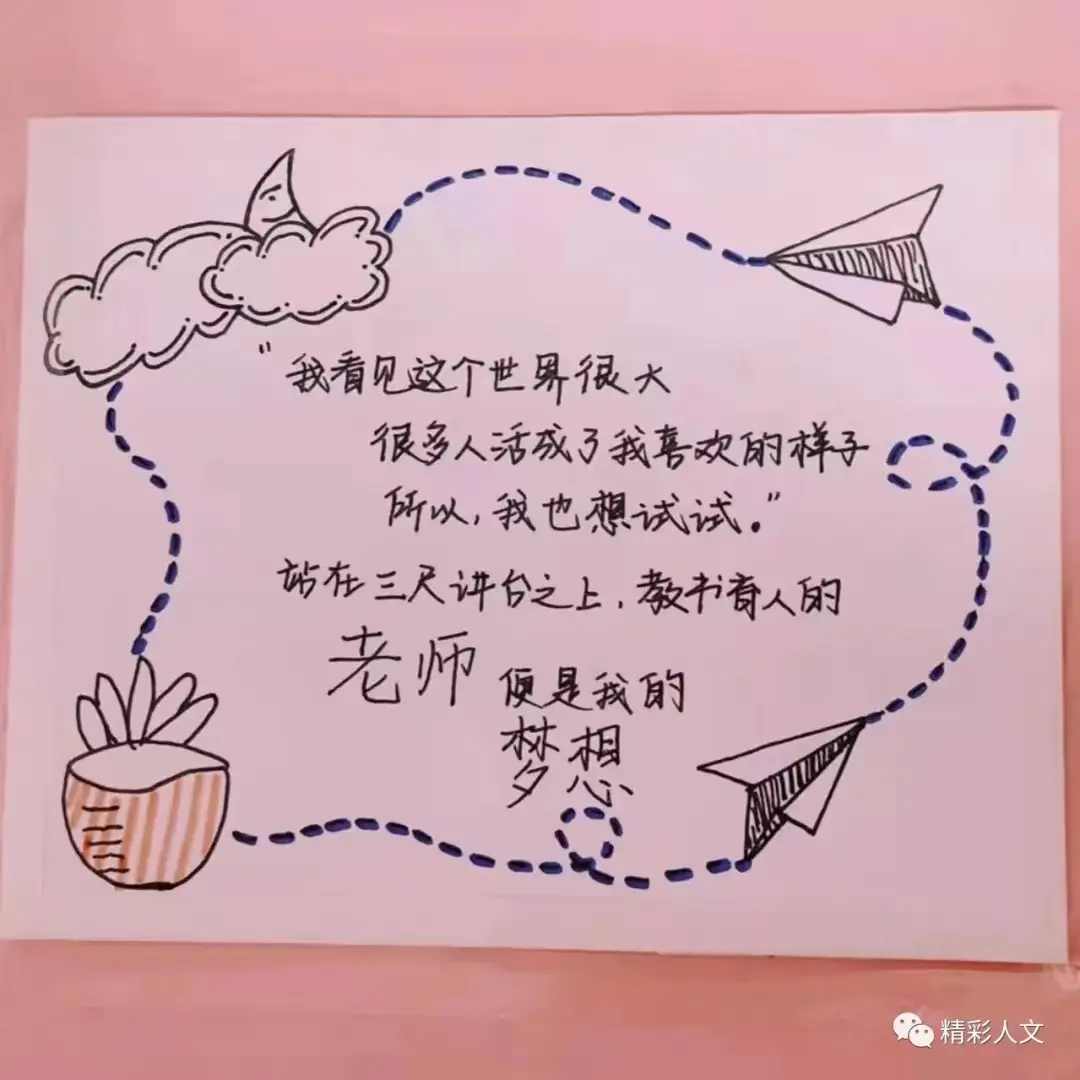 “我看见这个世界很大
很多人活成了我喜欢的样子
所以,我也想试试。”
站在三尺讲台之上,教书育人的
老师便是我的
梦想
精彩人文